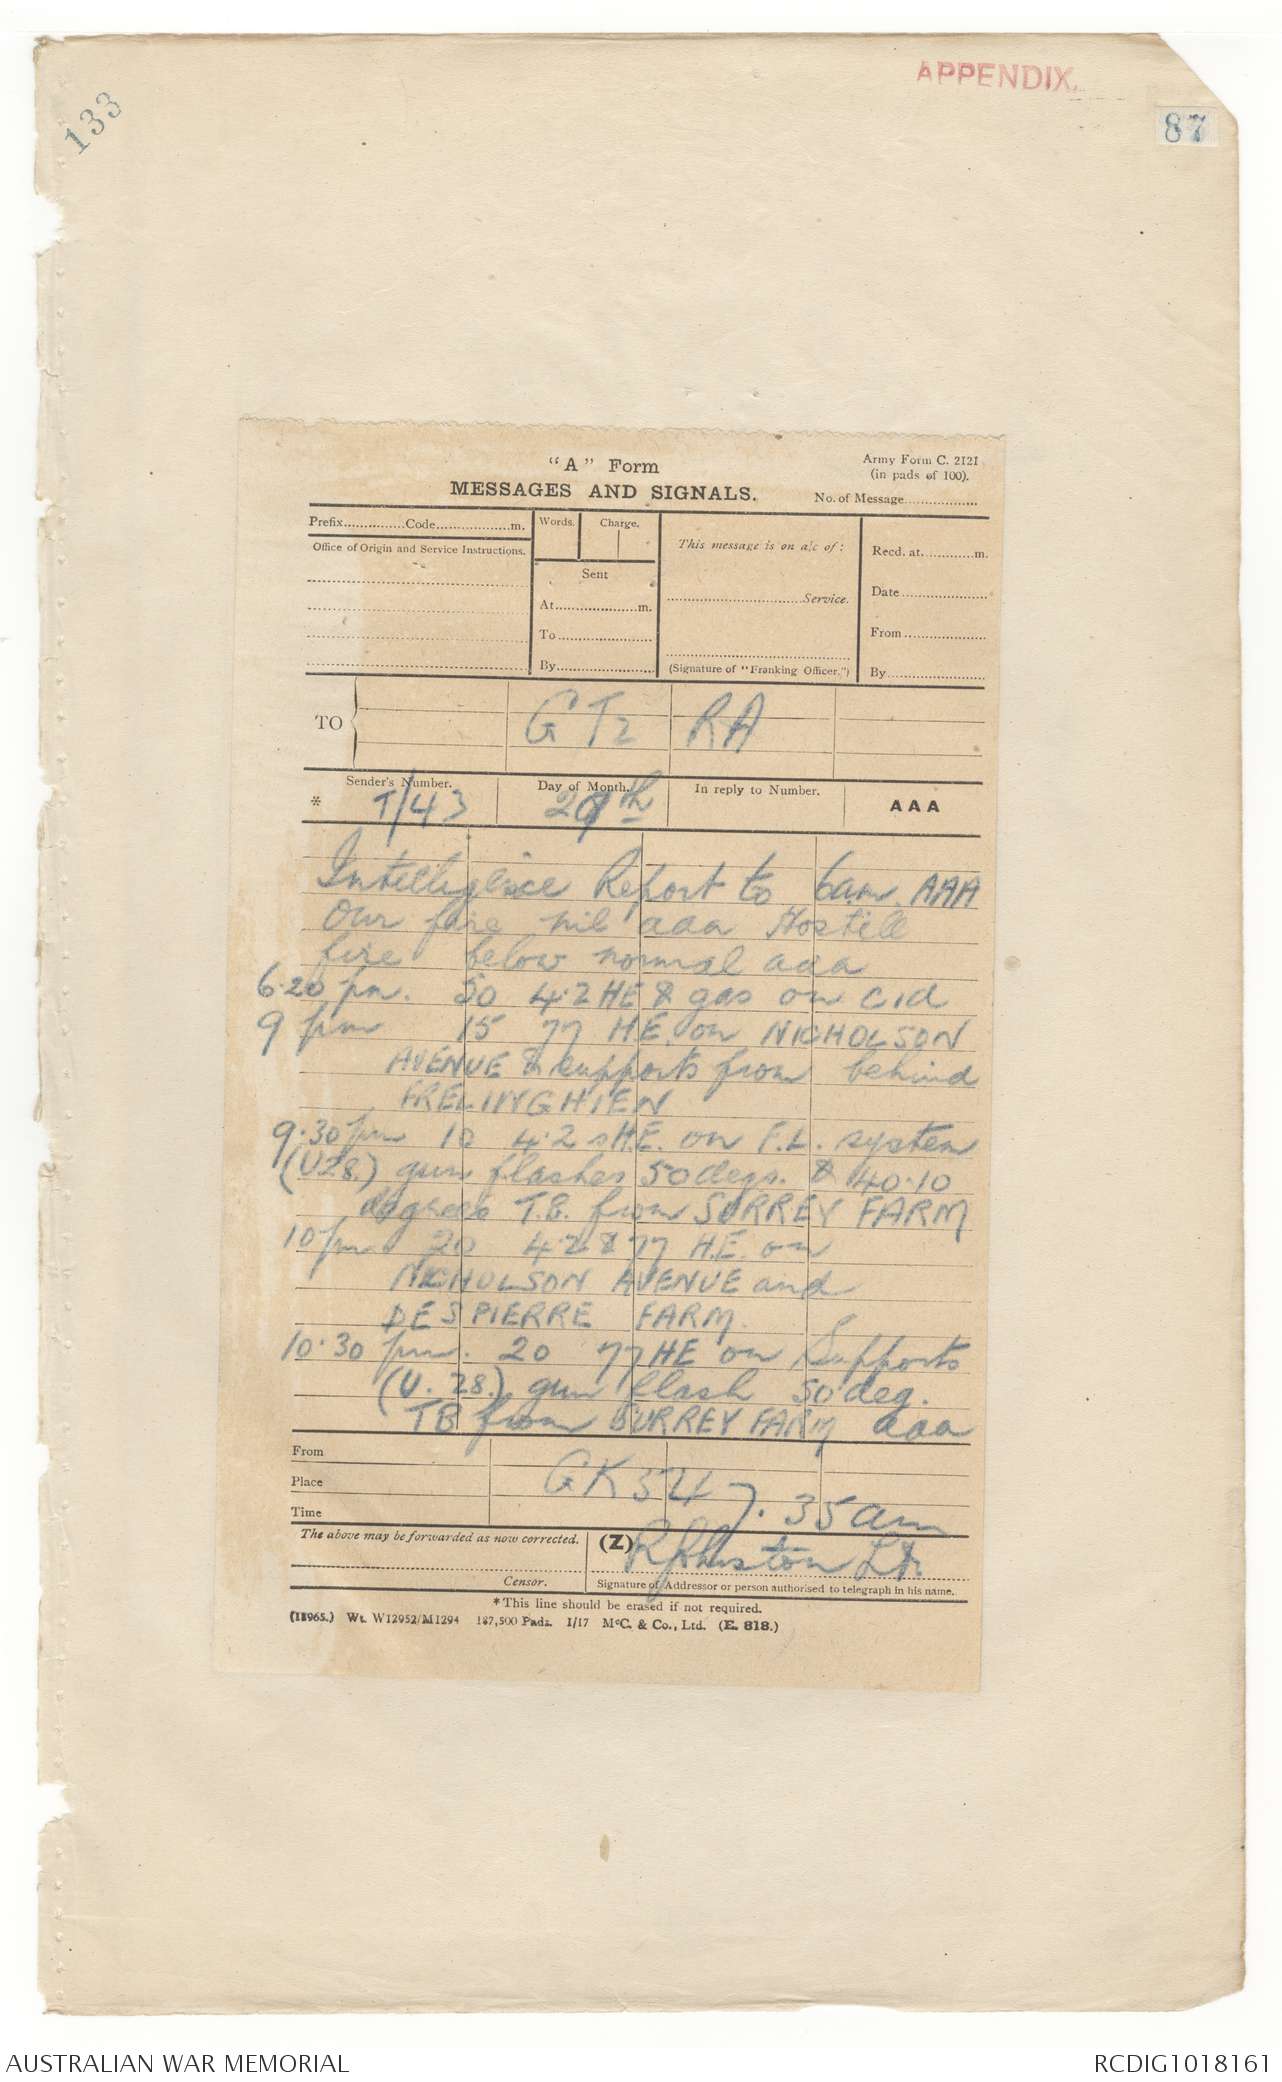 APPENDIX.
133
87
"A" Form
MESSAGES AND SIGNALS.
Army Form C. 2121
(in pads of 100).
No. of Message
Prefix Code m.
Office of Origin and Service Instructions.
Words. Charge.
Sent
At m.
To
By
This message is on a/c of:
Service.
(Signature of "Franking Officer.")
Recd. at m.
Date
From
By
TO
GT2 RA
Sender's Number.
Day of Month.
In reply to Number.
AAA
* T/43
th
Intelligence Report to 6am. AAA
Our fire nil aaa Hostile
fire below normal aaa
6.20 pm. 50 4.2 HE & gas on C1d
9 pm 15 77 HE. on NICHOLSON
AVENUE & supports from behind
FRELINGHIEN
9.30 pm 10 4.2s HE. on F.L. system
(U28.) gun flashes 50 degs. & 40.10
degrees T.B. from SURREY FARM
10 pm 20 4.2 & 77 H.E. on
NICHOLSON AVENUE and
DESPIERRE FARM.
10.30 pm. 20 77 HE on Supports
(U. 28.) gun flash 50 deg.
TB from SURREY FARM aaa
From
Place
Time
GK524 7.35 am
The above may be forwarded as now corrected.
(Z) R Johnston Lt.
Censor.
Signature of Addressor or person authorised to telegraph in his name.
*This line should be erased if not required.
(18965.) Wt. W12952/M1294 187,500 Pads. 1/17 McC. & Co., Ltd. (E. 818.)
AUSTRALIAN WAR MEMORIAL
RCDIG1018161